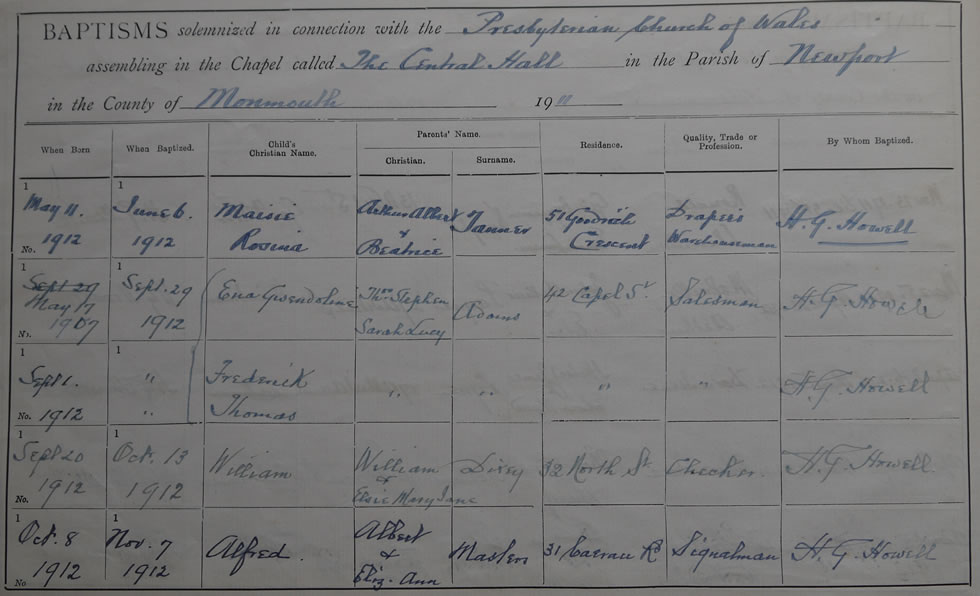 BAPTISMS solemnized in connection with the Presbyterian Church of Wales
assembling in the Chapel called The Central Hall in the Parish of Newport
in the County of Monmouth 1911
When Born When Baptized. Child's Christian Name. Parents' Name. Christian. Surname. Residence. Quality, Trade or Profession. By Whom Baptized.
1 1
May 11. June 6. Maisie Arthur Albert Tanner 51 Goodrich Drapers H. G. Howell
& Crescent Warehouseman
No. 1912 1912 Rosina Beatrice
1 1
Sept 29 Sept. 29 Ena Gwendoline Thos Stephen Adams 42 Capel St. Salesman H. G. Howell
May 17
No. 1907 1912 Sarah Lucy
1 1
Sept 1. " Frederick " " " " H. G. Howell
No. 1912 " Thomas
1 1
Sept 20 Oct. 13 William William Dixey 32 North St. Checker. H. G. Howell.
&
No. 1912 1912 Elsie Mary Jane
1 1
Oct. 8 Nov. 7 Alfred. Albert Masters 31 Caerau Rd Signalman H. G. Howell
&
No 1912 1912 Eliz. Ann